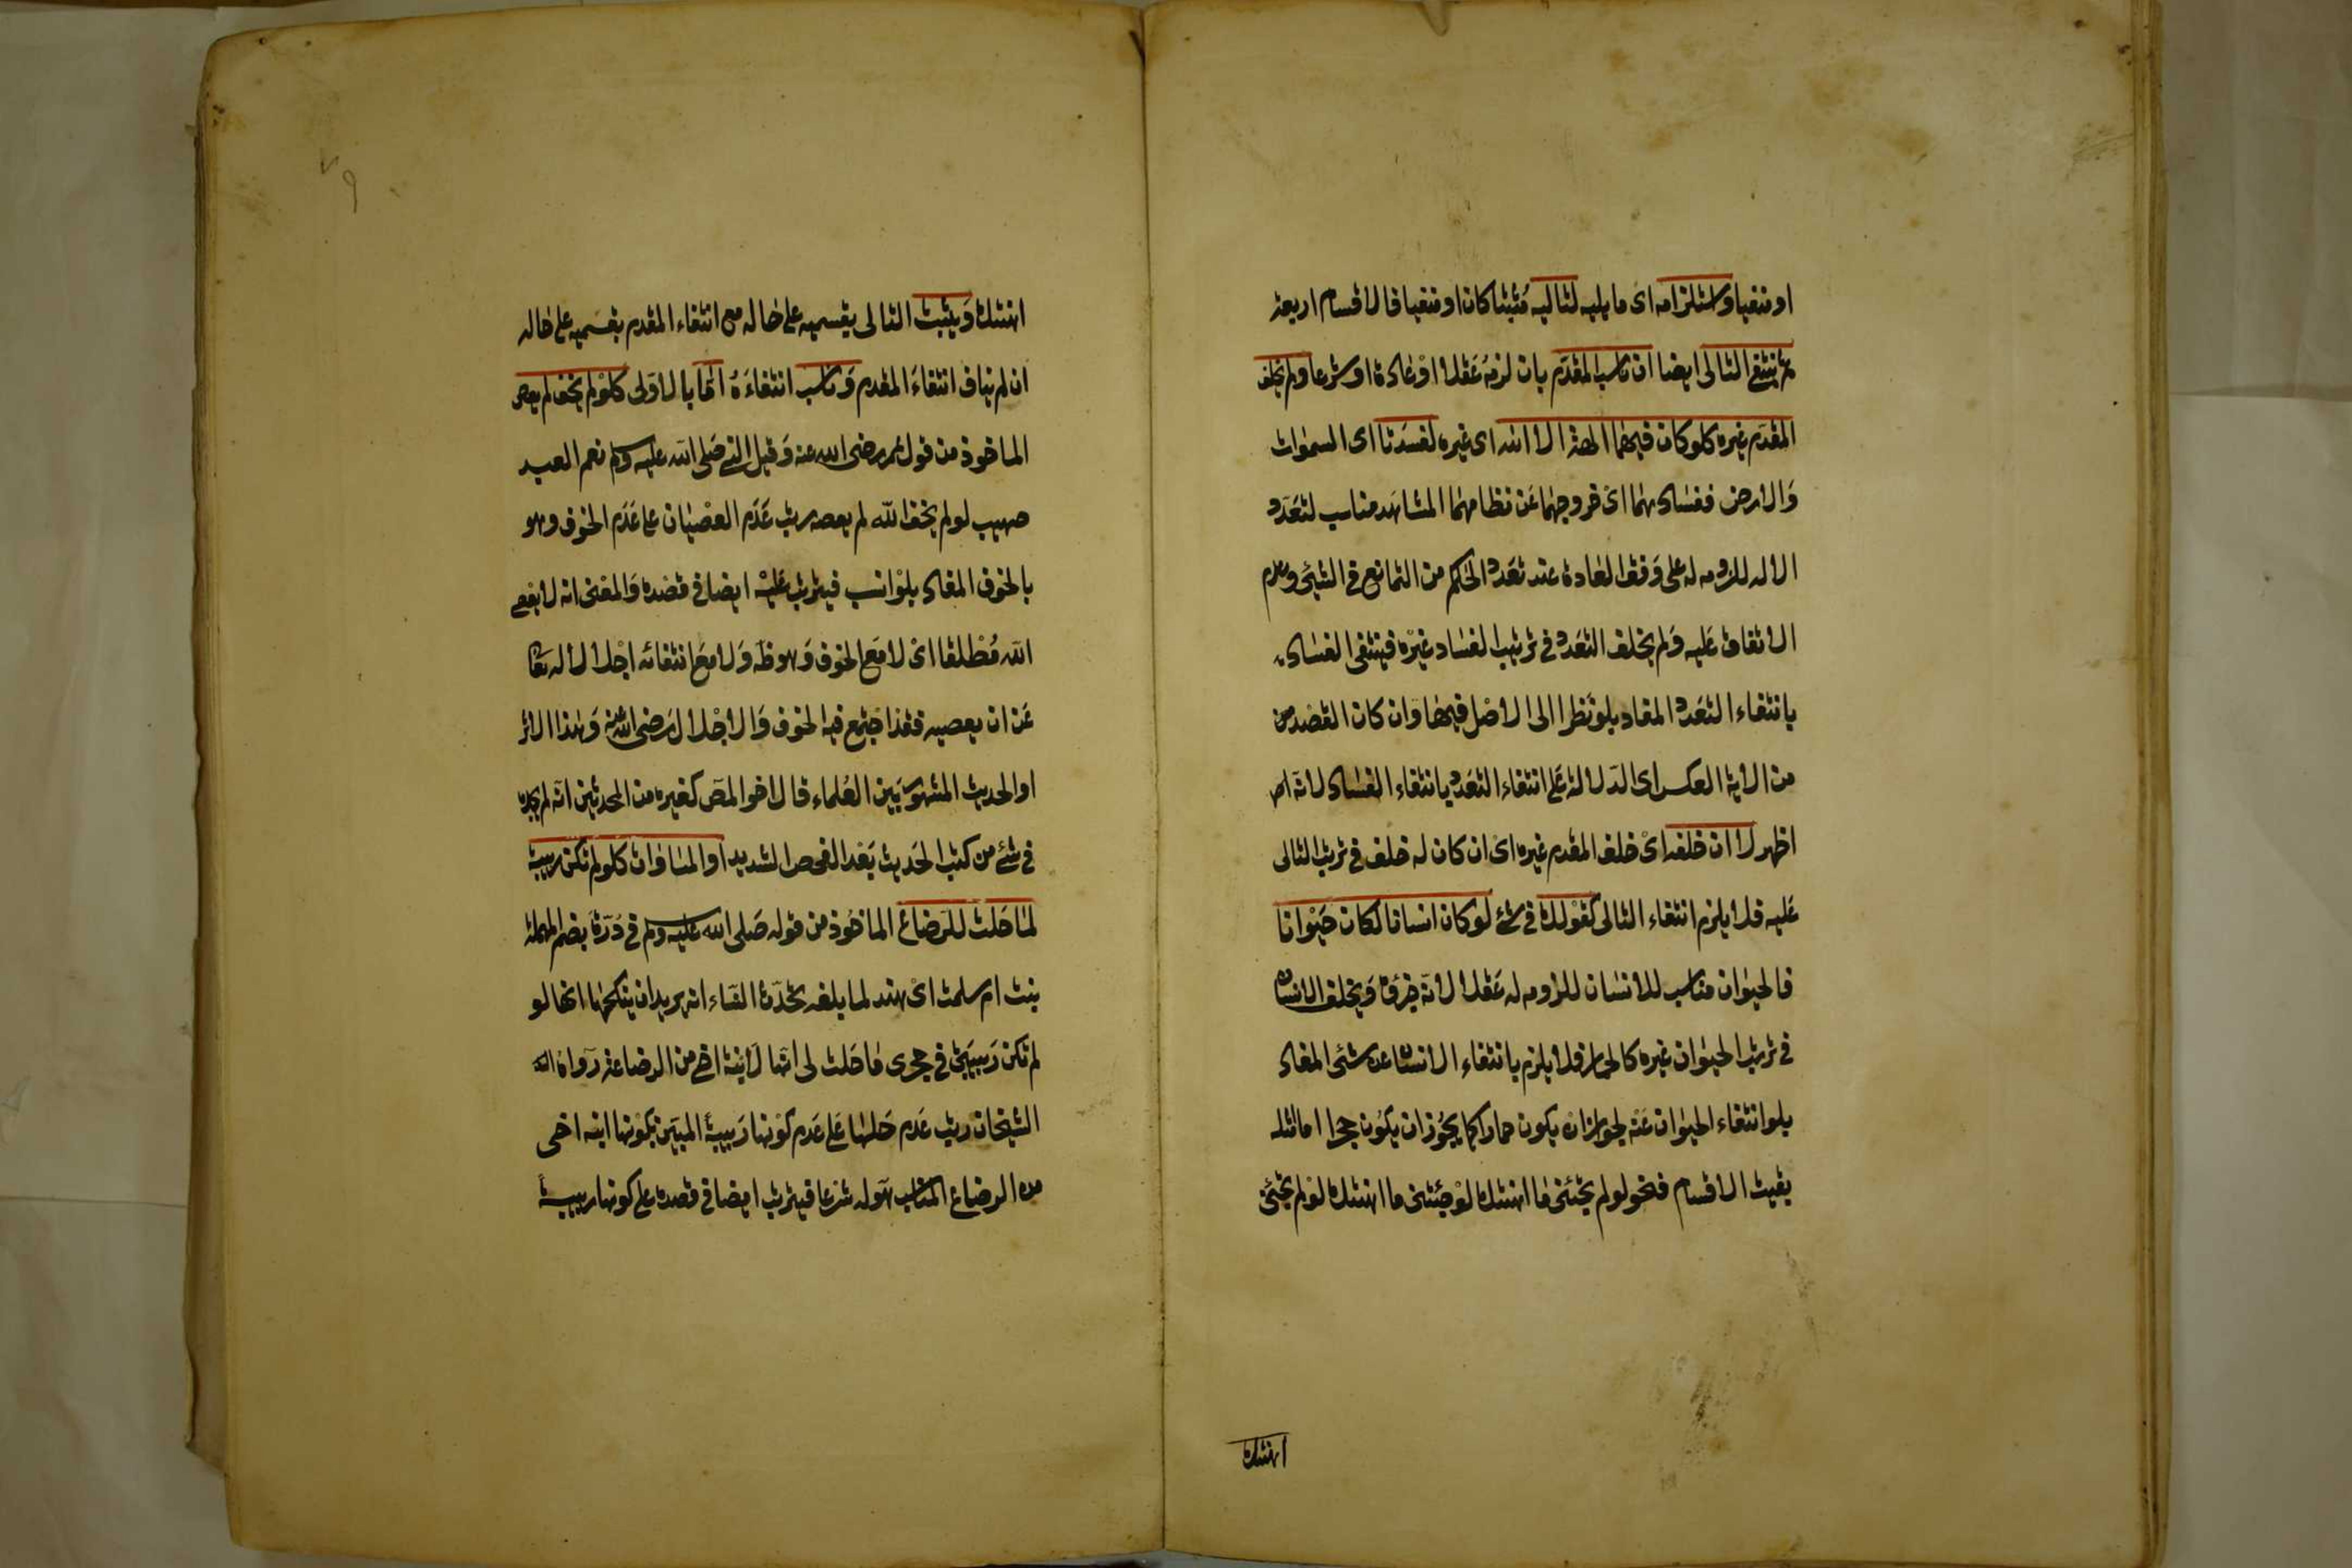 او منفيا واستلزامه اى ما يليه لتاليه مُثبتا كان او منفيا فالاقسام اربعة
ثم ينتفي التالى ايضا ان ناسب المقدّم بان لزمهُ عَقلا اوْ عادة او شرعا ولم يخلف
المقدّم غيره كلو كان فيهما الهة الا الله اى غيره لفسَدتا اى السموات
وَالارض ففسادهما اىْ خروجهما عَن نظامهما المشاهَد مناسب لتعَدد
الاله للزومه له على وَفق العادة عند تعَدد الحاكم من التمانع فى الشيئ وعدم
الاتفاق عَليه وَلم يخلف التعَدد فى ترتيب الفساد غيْره فينتفى الفسَاد
بانتفاء التعَدد المفاد بلو نَظرا الى الاصْل فيها وَان كان القصْد من
من الاية العكس اى الدّلالة عَلى انتفاء التعَدد بانتفاء الفسَاد لانّه
اظهر لا ان خلفه اىْ خلف المقدم غيره اىْ ان كان له خلف فى ترتيب التالى
عَليه فلا يلزم انتفاء التالى كقوْلك فى شئ لو كان انسانا لكان حَيْوانا
فالحيوان مناسب للانسَان للزومه له عَقلا لانّه جزؤه وَيخلف الانسان
فى ترتيب الحيوان غيره كالحمار فلا يلزم بانتفاء الانسان عن شئى المفاد
بلو انتفاء الحيوان عَنْه لجواز انْ يكون حمارا كما يجُوز ان يكوُن حجرا اما امثلة
بقيت الاقسام فنحو لو لم تجئنى مَا اهنتك لوْ جئتنى ما اهنتك لوْ لم تجئنى
اهنتك
اهنتك وَيثبت التالى بقسميه على حاله مع انتفاء المقدم بقسَميه على حاله
ان لم يناف انتفاءَ المقدم وَناسب انتفاءَهُ امّا بالاوْلى كلوْ لم يخف لم يعص
الماخوذ من قول عمر رضى الله عنه وَقيل النبي صَلى الله عليه وسلم نعم العبد
صهيب لو لم يخف الله لم يعصه رتب عَدَم العصْيان على عَدَم الخوف وهو
بالخوف المفاد بلوْ انسب فيترتب عَليْه ايضا فى قصْده وَالمعْنى انه لا يعصى
الله مُطْلقا اىْ لا مَع الخوف وَهو ظه وَلا معَ انتفائه اجْلالا له تعَالى
عَن ان يعصيه فقد اجتمع فيه الخوف وَالاجْلال رَضى الله عنه وَهذا الاثر
او الحديث المشهور بَين العُلماء قال اخو المصَ كغيره من المحدثين انّه لم يجده
فى شئ من كتب الحَديث بَعْد الفحص الشديد او المسَاوات كلو لم تكن ربيبة
لمَا حَلت للرّضاع الماخوُذ من قوله صَلى الله عليه وسلم فى دُرّة بضم المهملة
بنت ام سلمت اىْ هند لما بلغه تحَدّث النسَاء انه يريد ان ينكحَها انها لو
لم تكن رَبيبَتى فى حجرى مَا حَلت لى انّها لَابْنة اخى من الرضاعة رَواه
الشيخان رتب عَدم حَلهَا عَلى عَدم كوْنها رَبيبة المبَين بكوْنها ابنه اخى
من الرضاع المناسب هوَ له شرْعا فيترتب ايضا فى قصْده على كونها ربيبة